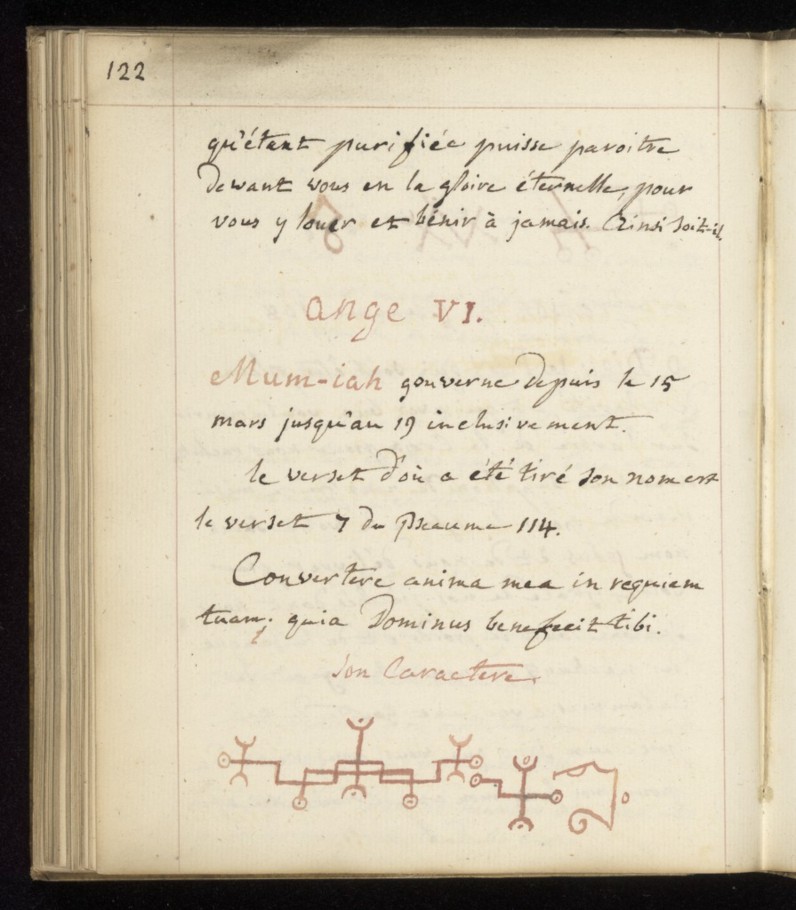 122
qu'étant purifiée puisse paroitre
Devant vous en la gloire éternelle, pour
vous y louer et bénir à jamais. Ainsi soit-il.
Ange VI.
Mum-iah gouverne Depuis le 15
mars jusqu'au 19 inclusivement.
le verset D'où a été tiré son nom est
le verset 7 du Pseaume 114.
Convertere anima mea in requiem
tuam; quia Dominus benefecit tibi.
Son Caractere.